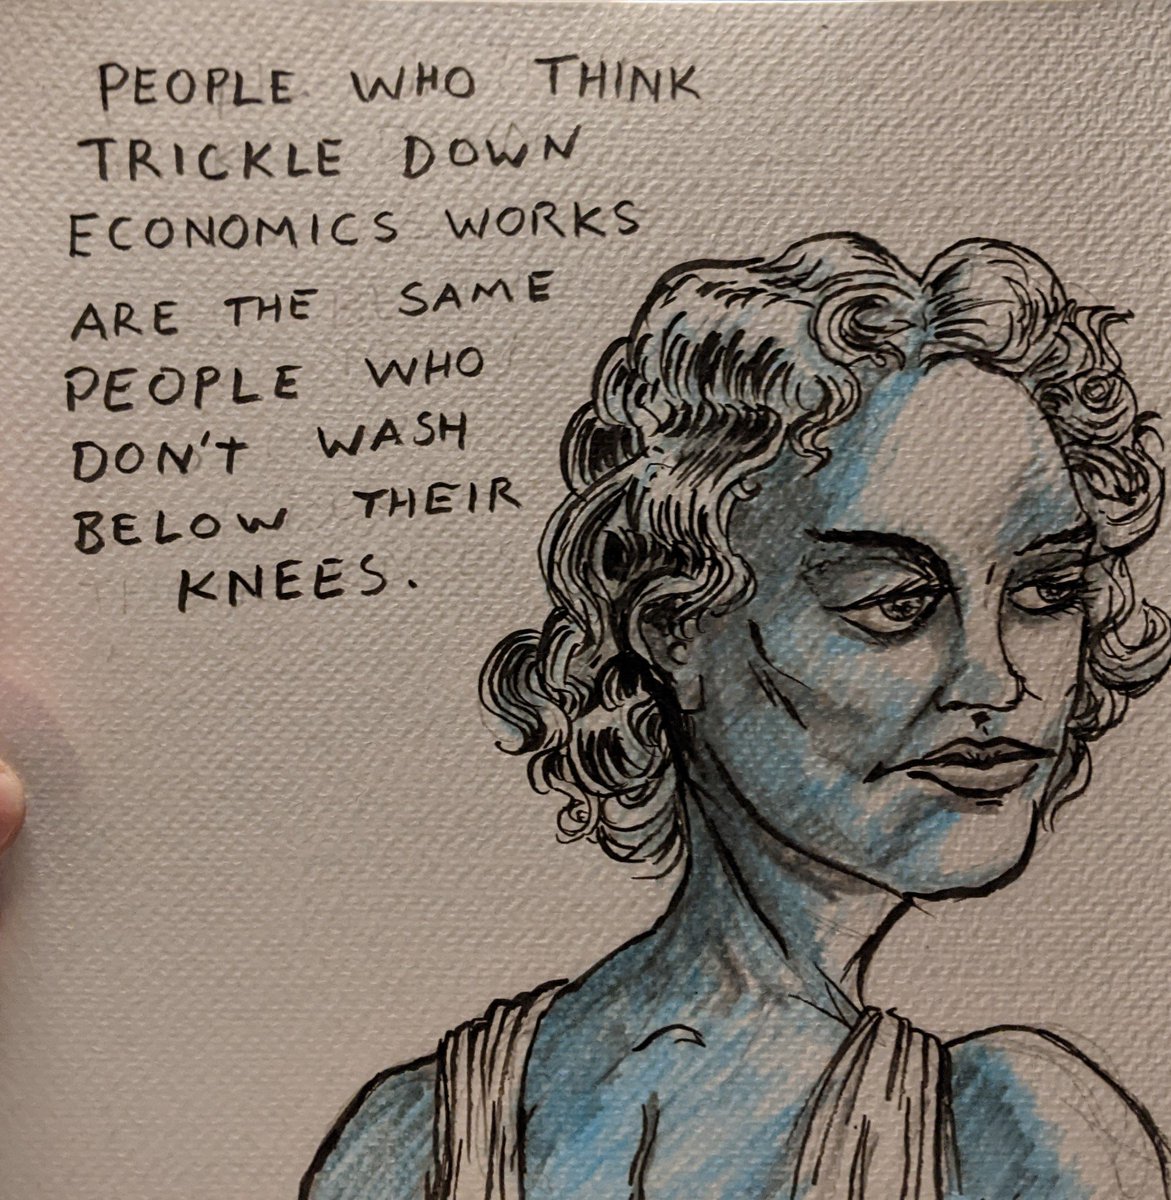 PEOPLE WHO THINK
TRICKLE DOWN
ECONOMICS WORKS
ARE THE SAME
PEOPLE WHO
DON'T WASH
BELOW THEIR
KNEES.